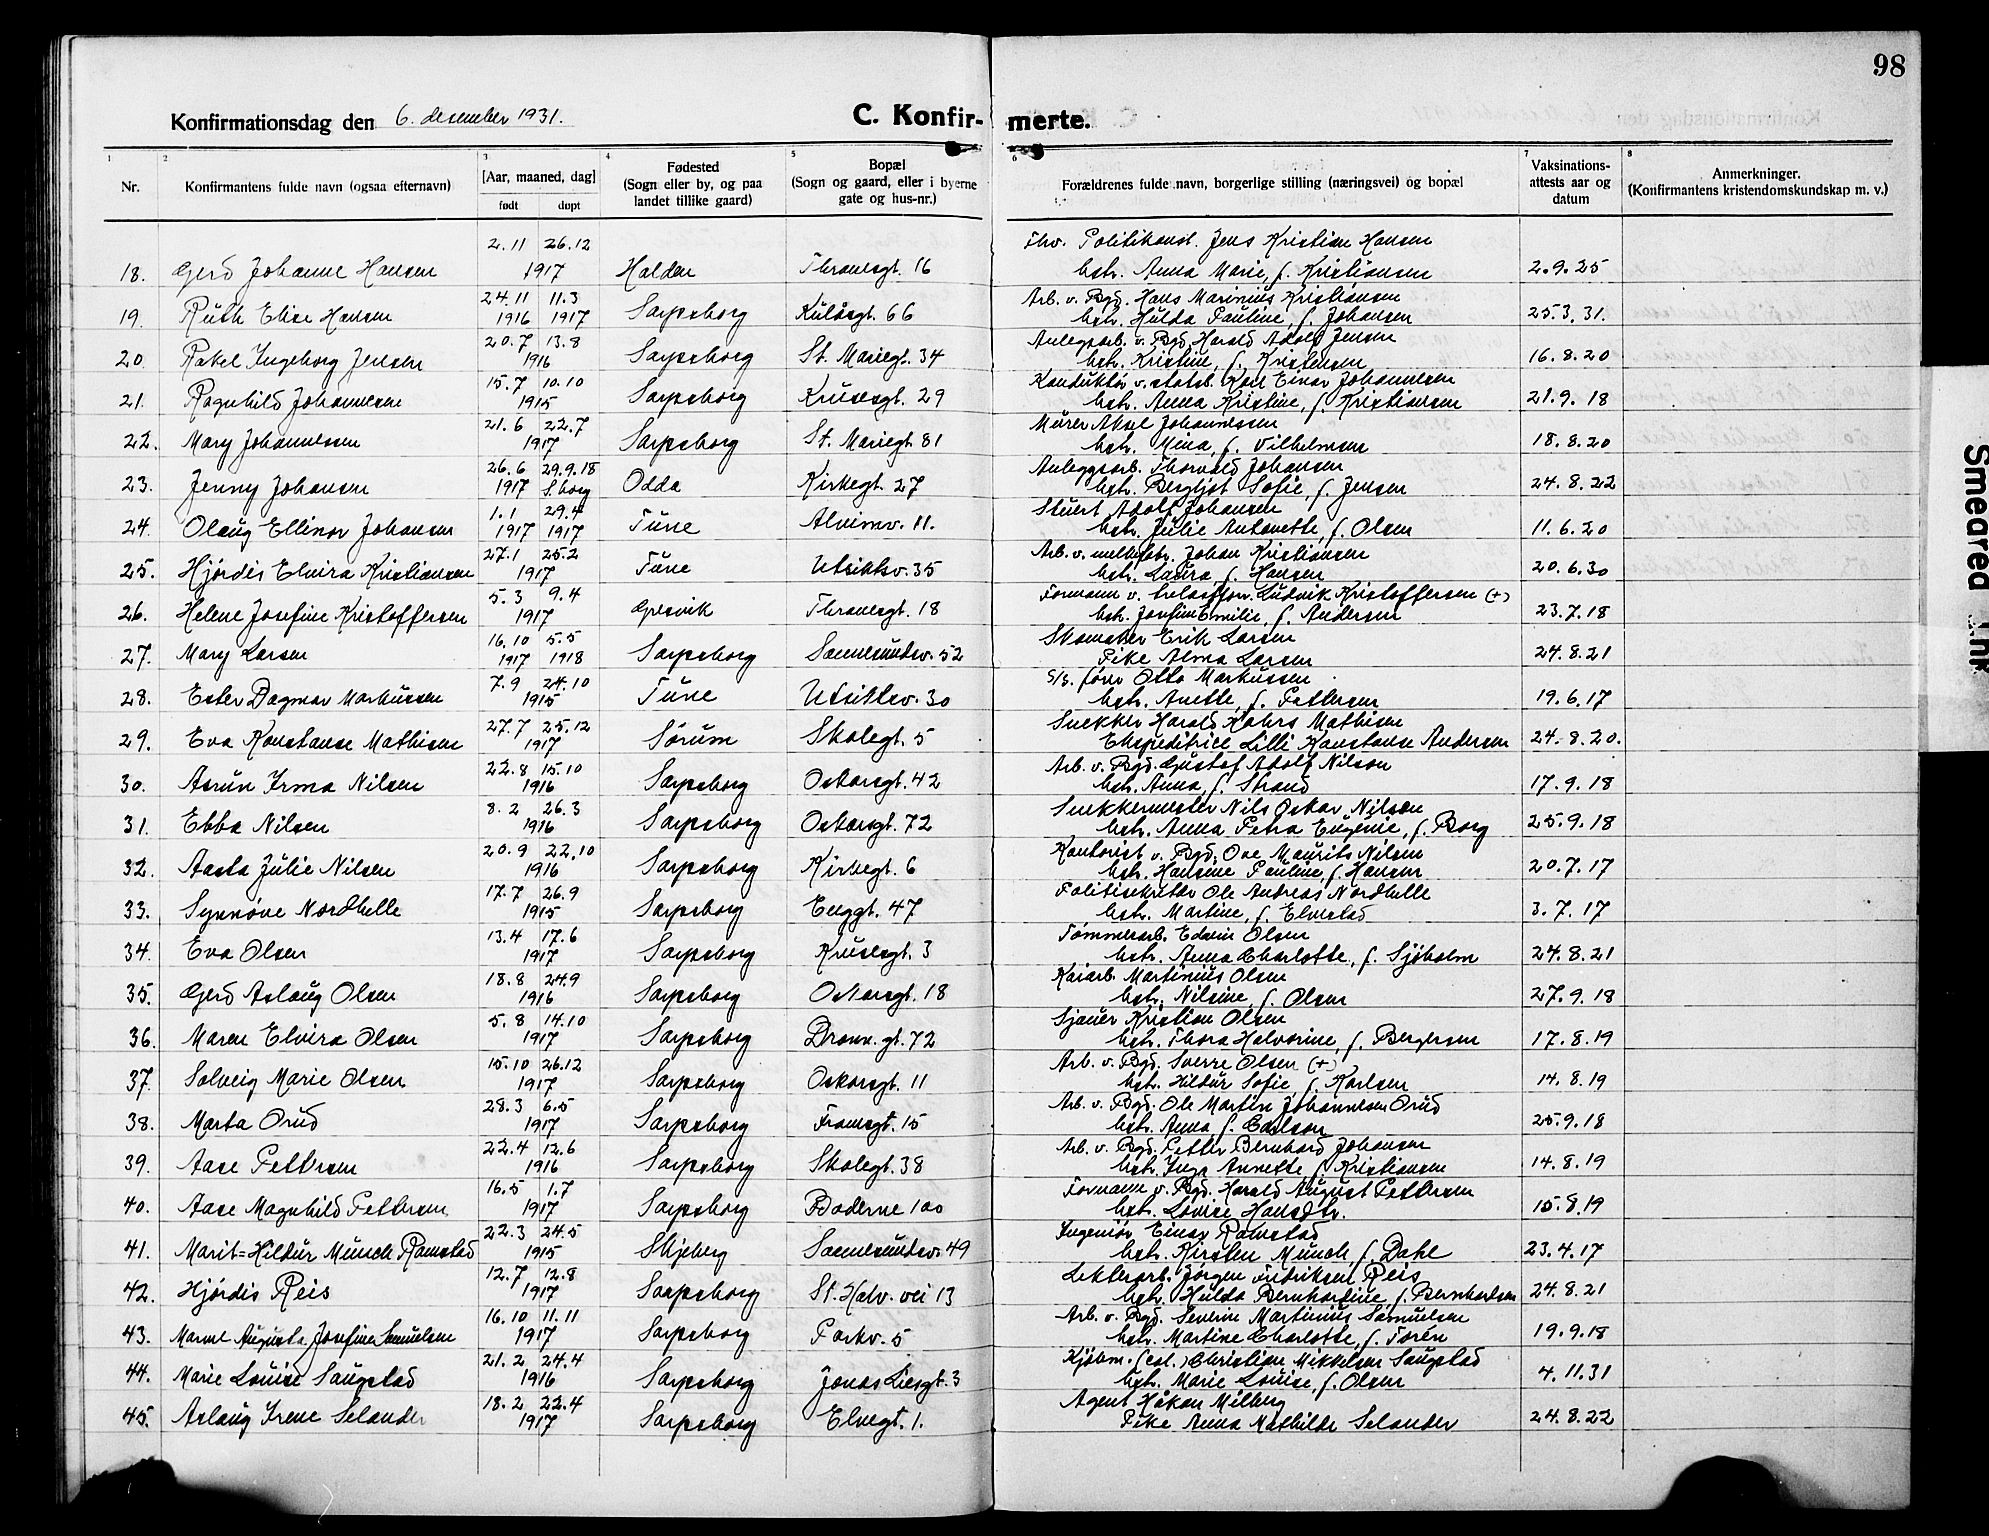 98
Konfirmationsdag den 6. desember 1931.
C. Konfir- merte.
1 2 3 4 5 6 7 8
Nr. Konfirmantens fulde navn (ogsaa efternavn) [Aar, maaned, dag] født døpt Fødested (Sogn eller by, og paa landet tillike gaard) Bopæl (Sogn og gaard, eller i byerne gate og hus-nr.) Forældrenes fulde navn, borgerlige stilling (næringsvei) og bopæl Vaksinations-attests aar og datum Anmerkninger. (Konfirmantens kristendomskundskap m. v.)
2.11 26.12 Fhv. Politikonst. Jens Kristian Hansen
18. Gerd Johanne Hansen 1917 Halden Thranesgt. 16 hstr. Anna Marie, f. Kristiansen 2.9.25
24.11 11.3 Arb. v. Bgd. Hans Marinius Kristiansen
19. Ruth Elise Hansen 1916 1917 Sarpsborg Kulåsgt. 66 hstr. Hulda Pauline, f. Johansen 25.3.31.
20.7 13.8 Anlegsarb. v. Bgd. Harald Adolf Jensen
20. Rakel Ingeborg Jensen 1916 Sarpsborg St. Mariegt. 34 hstr. Kristine, f. Kristensen 16.8.20
15.7 10.10 Konduktør v. statsb. Karl Einar Johannesen
21. Ragnhild Johannesen 1915 Sarpsborg Krusesgt. 29 hstr. Anna Kristine, f. Kristiansen 21.9.18
21.6 22.7 Murer Aksel Johannessen
22. Mary Johannessen 1917 Sarpsborg St. Mariegt. 81 hstr. Mina, f. Vilhelmsen 18.8.20
26.6 29.9.18 Anleggsarb. Thorvald Johansen
23. Jenny Johansen 1917 S.borg Odda Kirkegt. 27 hstr. Bergljot Sofie, f. Jensen 24.8.22
1.1 29.4 Stuert Adolf Johansen
24. Olaug Ellinor Johansen 1917 1917 Tune Alvimv. 11. hstr. Julie Antonette, f. Olsen 11.6.20
27.1 25.2 Arb. v. Johan Kristiansen
25. Hjørdis Elvira Kristiansen 1917 Tune Utsiktsv. 35 hstr. Laura, f. Hansen 20.6.30
5.3 9.4 Formann v. Ludvik Kristoffersen (+)
26. Helene Josefine Kristoffersen 1917 Gresvik Thranesgt. 18 hstr. Josefine Emilie, f. Andersen 23.7.18
16.10 5.5 Skomaker Erik Larsen
27. Mary Larsen 1917 1918 Sarpsborg Sannesundsv. 52 Pike Alma Larsen 24.8.21
7.9 24.10 S/s. fører Otto Markussen
28. Ester Dagmar Markussen 1915 Tune Utsiktsv. 30 hstr. Anette, f. Pettersen 19.6.17
27.7 25.12 Snekker Harald Mathisen
29. Eva Konstanse Mathisen 1917 Sørum Skolegt. 5 Ekspeditrice Lilli Konstanse Andersen 24.8.20.
22.8 15.10 Arb. v. Bgd. Gustaf Adolf Nilson
30. Asrun Irma Nilsen 1916 Sarpsborg Oskarsgt. 42 hstr. Anna, f. Strand 17.9.18
8.2 26.3 Snekkermester Nils Oskar Nilsen
31. Ebba Nilsen 1916 Sarpsborg Oskarsgt. 72 hstr. Anna Petra Eugenie, f. Borg 25.9.18
20.9 22.10 Kontorist v. Bgd. Ove Maurits Nilsen
32. Aasta Julie Nilsen 1916 Sarpsborg Kirkegt. 6 hstr. Hansine Pauline, f. Hansen 20.7.17
17.7 26.9 Politisekretær Ole Andreas Nordhelle
33. Synnøve Nordhelle 1915 Sarpsborg Enggt. 47 hstr. Martine, f. Elvestad 3.7.17
13.4 17.6 Tømmerarb. Edwin Olsen
34. Eva Olsen 1917 Sarpsborg Krusesgt. 3 hstr. Anna Charlotte, f. Sjøholm 24.8.21
18.8 24.9 Kaiarb. Martinius Olsen
35. Gerd Aslaug Olsen 1916 Sarpsborg Oskarsgt. 18 hstr. Nilsine, f. Olsen 27.9.18
5.8 14.10 Sjauer Kristian Olsen
36. Maren Elvira Olsen 1917 Sarpsborg Dronn. gt. 72 hstr. Thora Halvorine, f. Bergersen 17.8.19
15.10 26.12 Arb. v. Bgd. Sverre Olsen (+)
37. Solveig Marie Olsen 1917 Sarpsborg Oskarsgt. 11 hstr. Hildur Sofie, f. Karlsen 14.8.19
28.3 6.5 Arb. v. Bgd. Ole Martin Johannesen Orud
38. Marta Orud 1917 Sarpsborg Framsgt. 15 hstr. Anna f. Carlson 25.9.18
22.4 12.6 Arb. v. Bgd. Petter Bernhard Johansen
39. Aase Pettersen 1916 Sarpsborg Skolegt. 38 hstr. Inga Annette, f. Kristiansen 14.8.19
16.5 1.7 Formann v. Bgd. Harald August Pettersen
40. Aase Magnhild Pettersen 1917 Sarpsborg Baderne 100 hstr. Lovise Hansdtr. 15.8.19
22.3 24.5 Ingeniør Einar Ramstad
41. Marit=Hildur Munch Ramstad 1915 Skjeberg Sannesundsv. 49 hstr. Kirsten Munch, f. Dahl 23.4.17
12.7 12.8 Lekterarb. Jørgen Fredriksen Reis
42. Hjørdis Reis 1917 Sarpsborg St. Halv. vei 13 hstr. Hulda Bernhardine, f. Bernhardsen 24.8.21
16.10 11.11 Arb. v. Bgd. Severin Martinius Samuelsen
43. Marne Augusta Josefine Samuelsen 1917 Sarpsborg Parkv. 5 hstr. Martine Charlotte, f. Torén 19.9.18
21.2 24.4 Kjøbm. (col.) Christian Mikkelsen Saugstad
44. Marie Louise Saugstad 1916 Sarpsborg Jonas Liesgt. 3 hstr. Marie Louise, f. Olsen 4.11.31
18.2 22.4 Agent Håkon Milberg
45. Aslaug Irene Selander 1917 Sarpsborg Elvegt. 1. Pike Anna Mathilde Selander 24.8.22
Smeared Ink